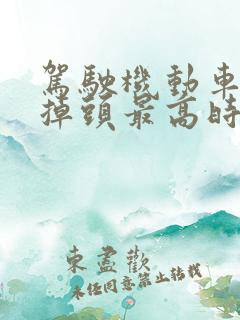 駕駛機動車
掉頭最高時
東盡歡
未任同意禁止轉載